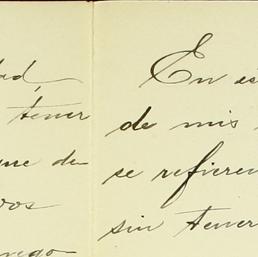 dad,
tener
que de
vos
En es
de mis
se refieren
sin tener